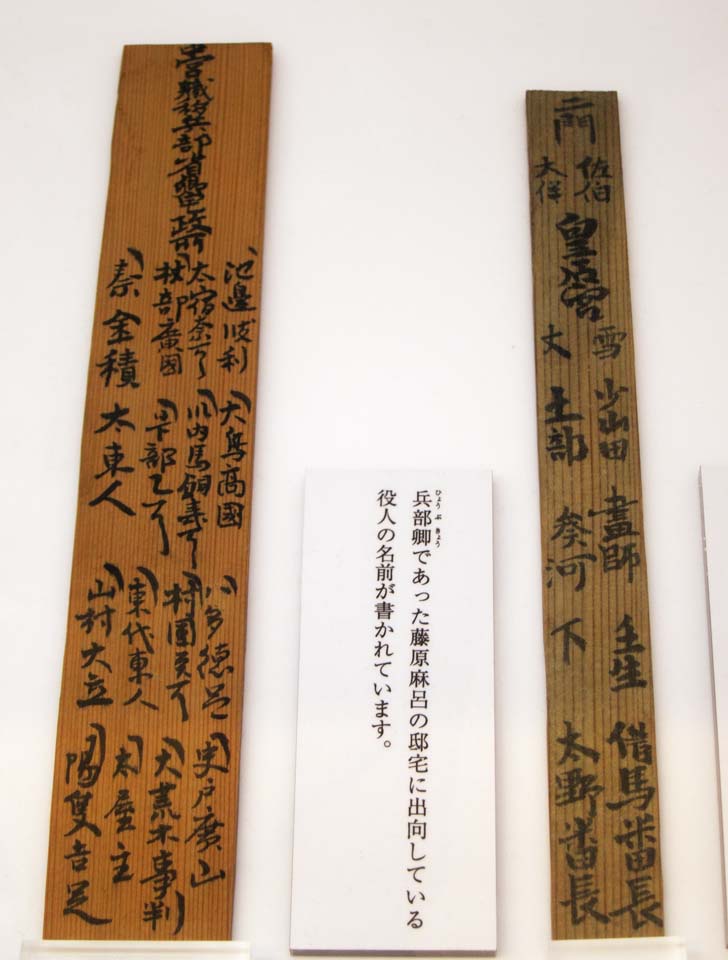 二門
佐伯
大伴
皇后宮
雪 少山田 畫師 壬生 借馬番長
丈 土部 河 下 太野番長
兵部卿であった藤原麻呂の邸宅に出向している
ひょう ぶ きょう
役人の名前が書かれています。
中宮職移兵部省卿宅政所
池邊波利 大鳥高國 八多徳足 史戸廣山
太宿奈万呂 川内馬飼夷万呂 村国虫万呂 大荒木事判
杖部廣國 日下部乙万呂 東代東人 太屋主
秦金積 太東人 山村大立 陽隻吉足